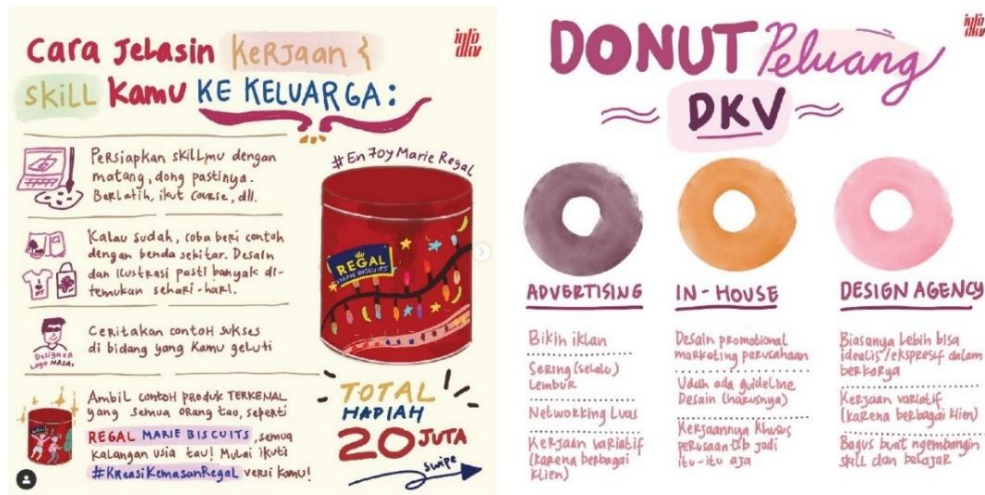 info
dkv
Cara Jelasin Kerjaan &
skill Kamu KE KELUARGA:
Persiapkan skillmu dengan
matang, dong pastinya.
Berlatih, ikut course, dll.
Kalau sudah, coba beri contoh
dengan benda sekitar. Desain
dan ilustrasi pasti banyak di-
temukan sehari-hari.
Ceritakan contoh sukses
di bidang yang kamu geluti
Designer
Logo NASA.
Ambil contoh produk TERKENAL
yang semua orang tau, seperti
REGAL MARIE BISCUITS, semua
kalangan usia tau! Mulai ikuti
#KreasiKemasanRegal versi kamu!
#EnJoyMarieRegal
REGAL
MARIE BISCUITS
TOTAL
HADIAH
20 JUTA
swipe
info
dkv
DONUT Peluang
DKV
ADVERTISING
Bikin iklan
Sering (selalu)
lembur
Networking Luas
Kerjaan variatif
(karena berbagai
klien)
IN-HOUSE
Desain promotional
marketing perusahaan
Udah ada guideline
Desain (harusnya)
Kerjaannya khusus
perusaan tsb jadi
itu-itu aja
DESIGN AGENCY
Biasanya lebih bisa
idealis/ekspresif dalam
berkarya
Kerjaan variatif
(karena berbagai klien)
Bagus buat ngembangin
skill dan belajar